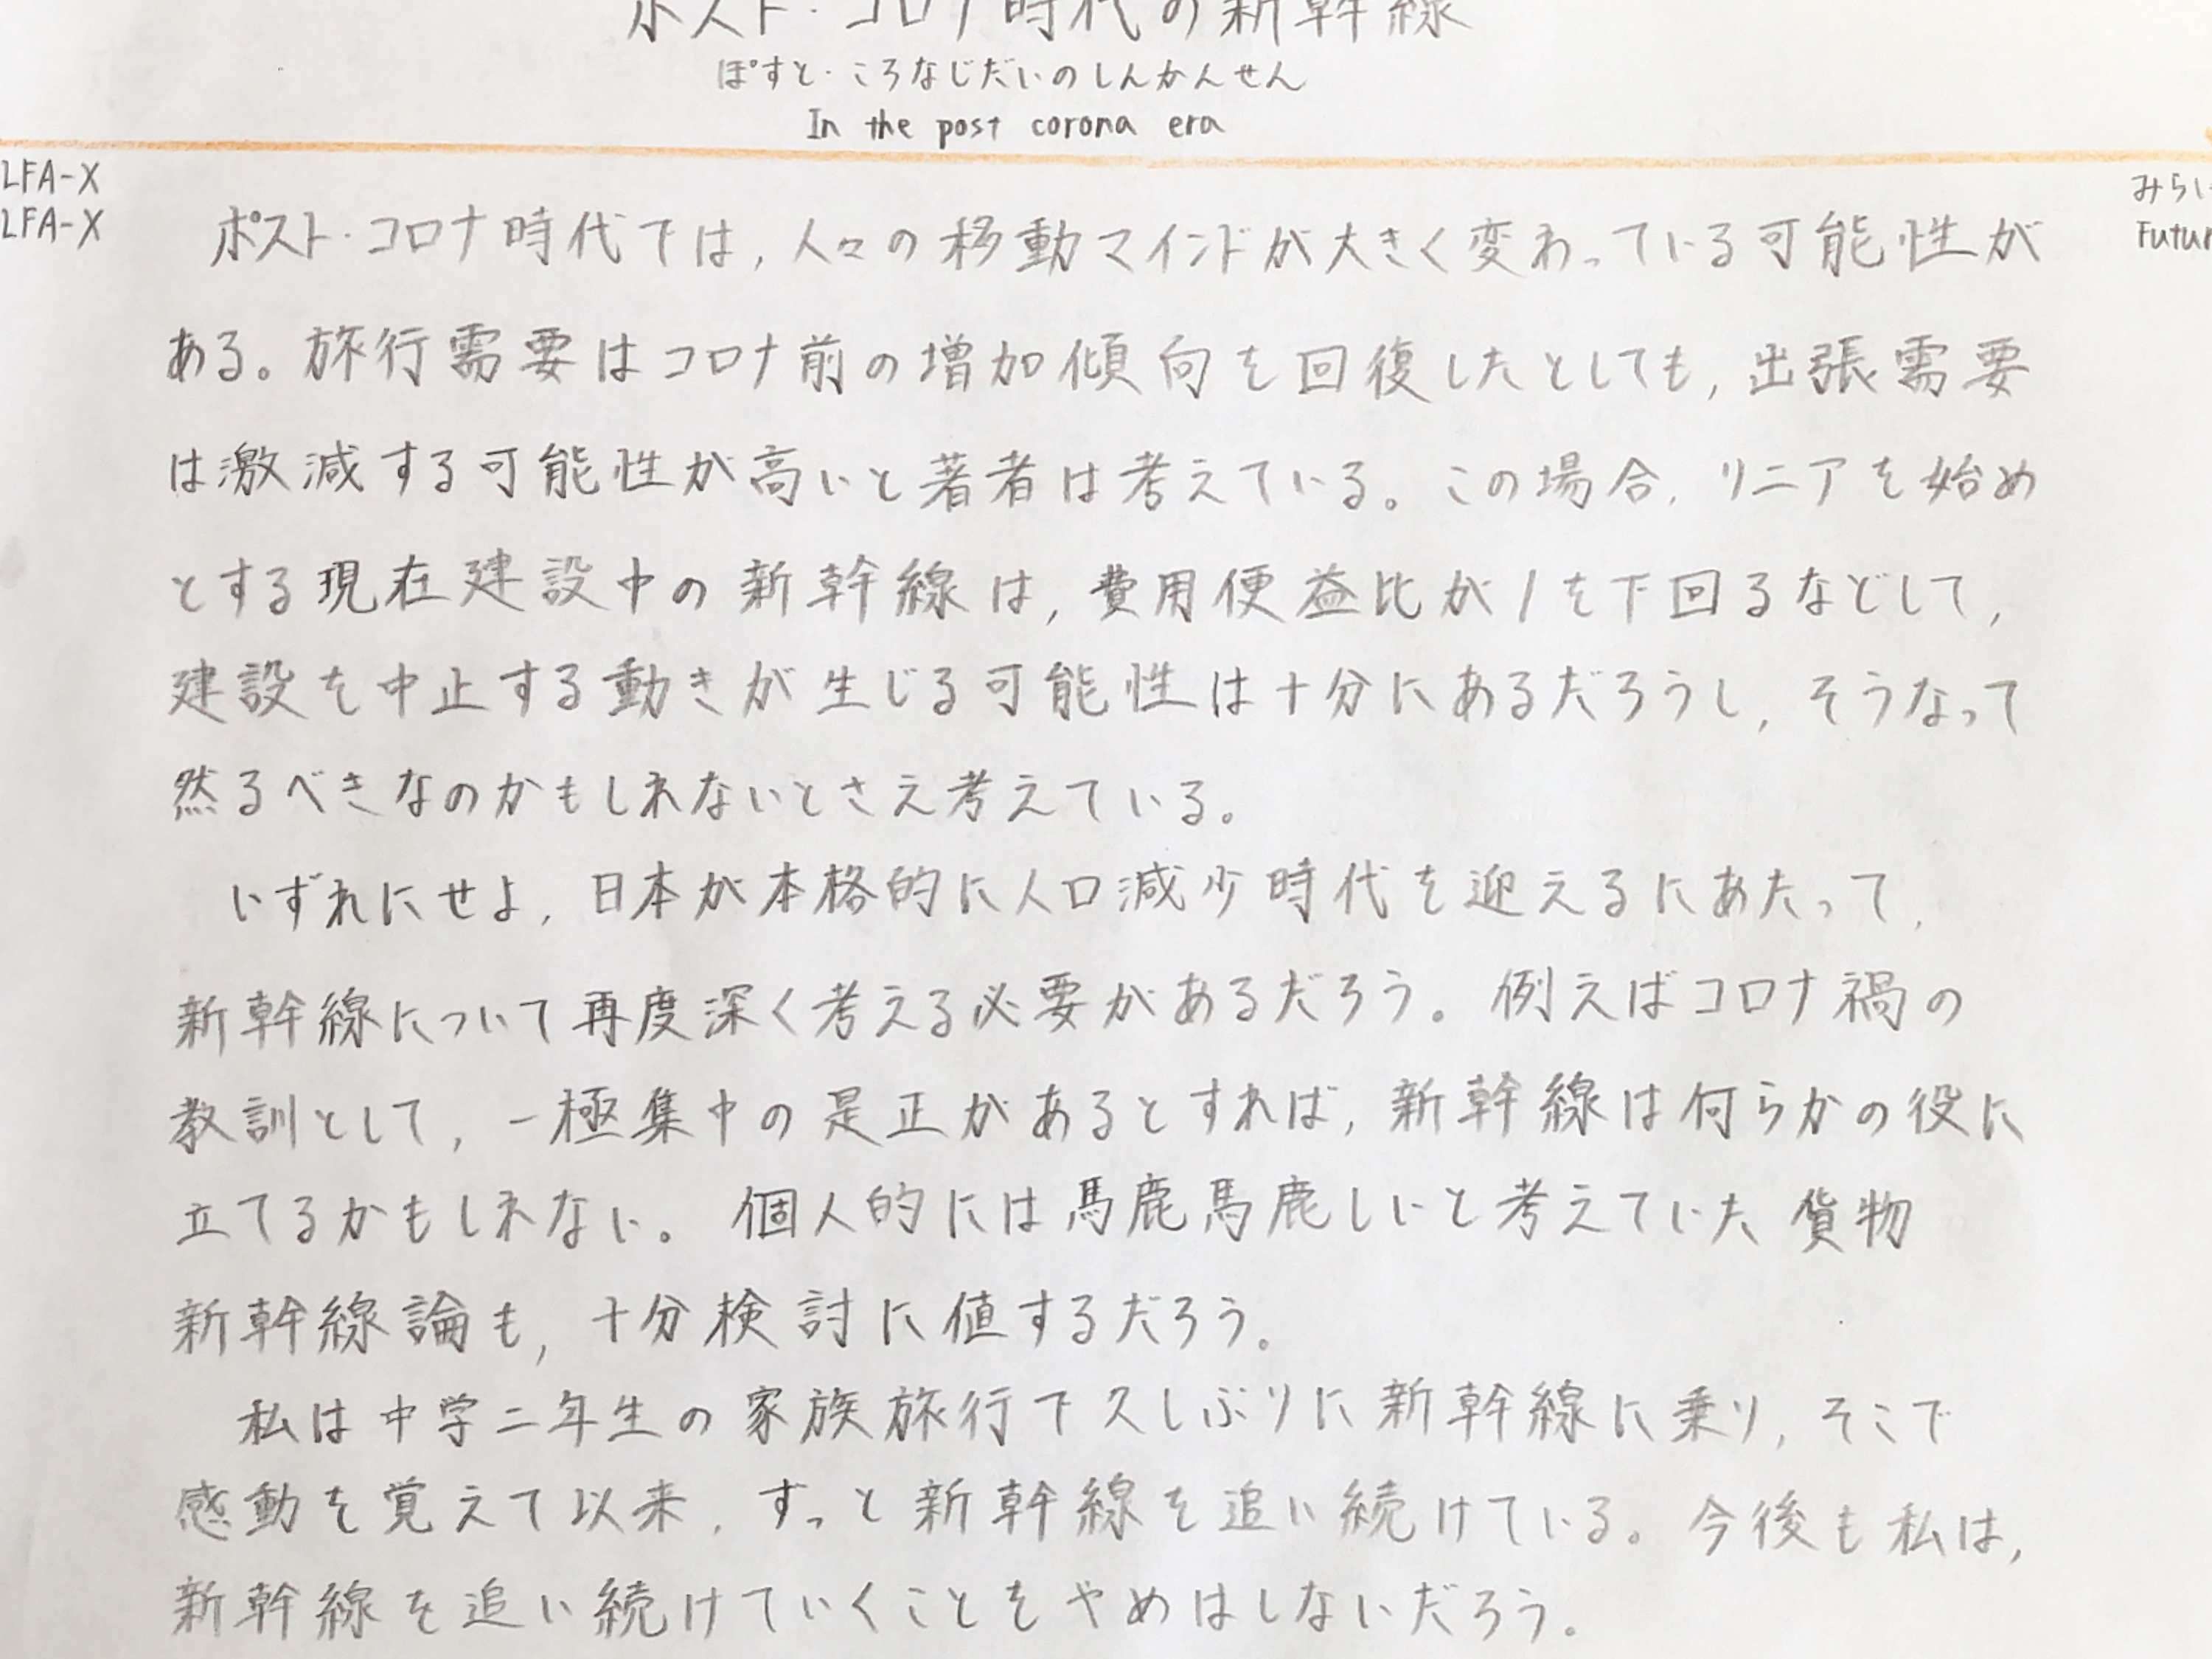 ポスト・コロナ時代の新幹線
ぽすと・ころなじだいのしんかんせん
In the post corona era
LFA-X
LFA-X
みらい
Futur
ポスト・コロナ時代では,人々の移動マインドが大きく変わっている可能性が
ある。旅行需要はコロナ前の増加傾向を回復したとしても,出張需要
は激減する可能性が高いと著者は考えている。この場合,リニアを始め
とする現在建設中の新幹線は,費用便益比が1を下回るなどして,
建設を中止する動きが生じる可能性は十分にあるだろうし,そうなって
然るべきなのかもしれないとさえ考えている。
いずれにせよ,日本が本格的に人口減少時代を迎えるにあたって,
新幹線について再度深く考える必要があるだろう。例えばコロナ禍の
教訓として,一極集中の是正があるとすれば,新幹線は何らかの役に
立てるかもしれない。個人的には馬鹿馬鹿しいと考えていた貨物
新幹線論も,十分検討に値するだろう。
私は中学二年生の家族旅行で久しぶりに新幹線に乗り,そこで
感動を覚えて以来,ずっと新幹線を追い続けている。今後も私は,
新幹線を追い続けていくことをやめはしないだろう。